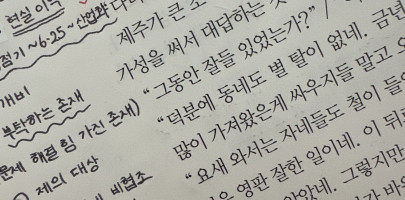 현실 이
점기 ~ 6·25 ~ 산업화
개비
부탁하는 존재
문제 해결 힘 가진 존재)
제의 대상
비협조
제주가 큰 소
가성을 써서 대답하는
“그동안 잘들 있었는가?” /
“덕분에 동네도 별 탈이 없네. 금년
많이 가져왔은게 싸우지들 말고
“요새 와서는 자네들도 철이 들
은 영판 잘한 일이네. 이 뒤
않았네. 그렇지만